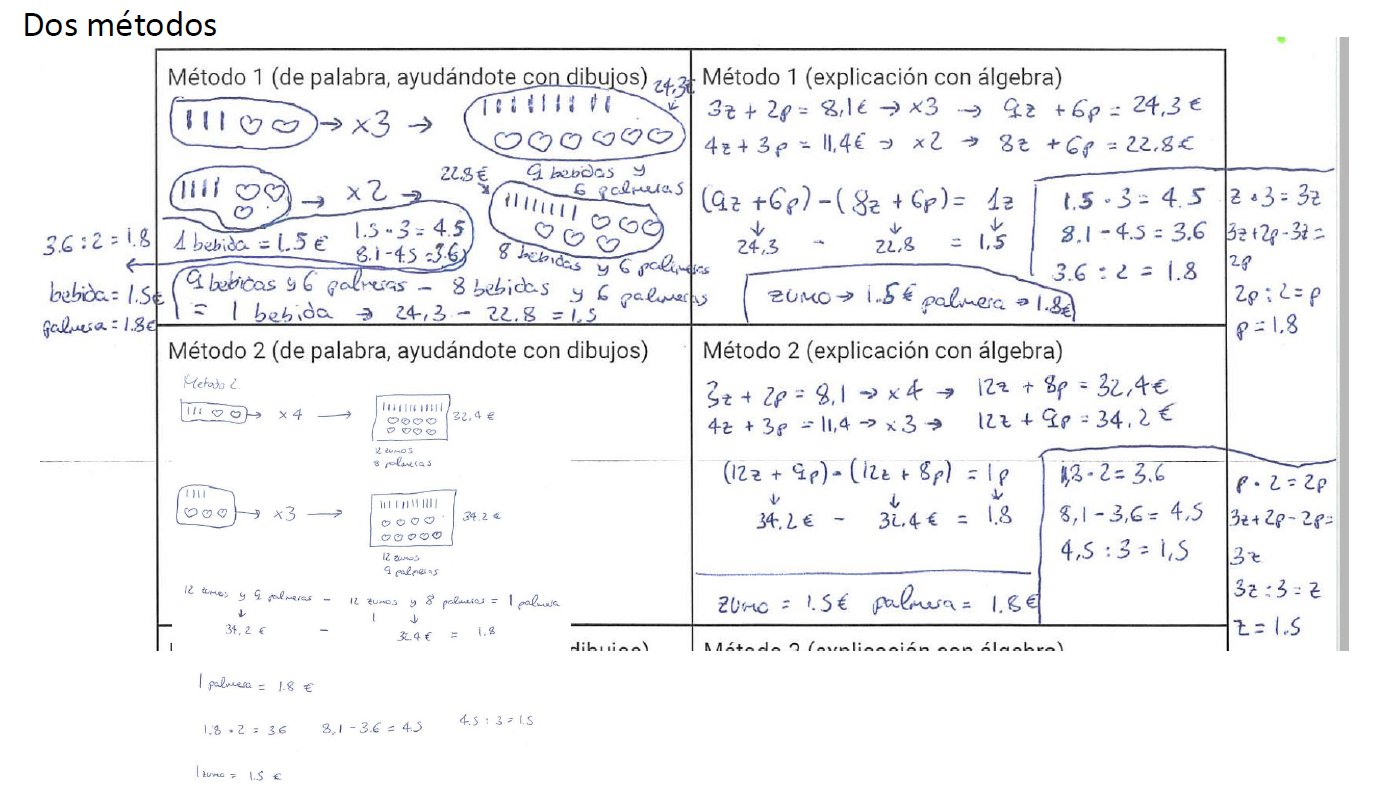 Dos métodos
Método 1 (de palabra, ayudándote con dibujos)
24,3€
→ x3 →
9 bebidas y
6 palmeras
→ x2 →
22.8€
8 bebidas y 6 palmeras
1 bebida = 1.5€
1.5 · 3 = 4.5
8.1 - 4.5 = 3.6
3.6 : 2 = 1.8
bebida = 1.5€
palmera = 1.8€
9 bebidas y 6 palmeras - 8 bebidas y 6 palmeras
= 1 bebida → 24,3 - 22.8 = 1.5
Método 1 (explicación con álgebra)
3z + 2p = 8,1€ → x3 → 9z + 6p = 24,3€
4z + 3p = 11,4€ → x2 → 8z + 6p = 22.8€
(9z + 6p) - (8z + 6p) = 1z
↓ ↓ ↓
24,3 - 22.8 = 1.5
1.5 · 3 = 4.5
8.1 - 4.5 = 3.6
3.6 : 2 = 1.8
zumo → 1.5€ palmera → 1.8€
z · 3 = 3z
3z+2p-3z=
2p
2p : 2 = p
p = 1.8
Método 2 (de palabra, ayudándote con dibujos)
Metodo 2
→ x4 →
32.4€
12 zumos
8 palmeras
→ x3 →
34.2€
12 zumos
9 palmeras
12 zumos y 9 palmeras - 12 zumos y 8 palmeras = 1 palmera
↓ ↓
34,2€ - 32.4€ = 1.8
1 palmera = 1.8 €
1.8 · 2 = 3.6 8,1 - 3.6 = 4.5 4.5 : 3 = 1.5
1 zumo = 1.5 €
Método 2 (explicación con álgebra)
3z + 2p = 8,1 → x4 → 12z + 8p = 32,4€
4z + 3p = 11,4 → x3 → 12z + 9p = 34,2€
(12z + 9p) - (12z + 8p) = 1p
↓ ↓ ↓
34.2€ - 32.4€ = 1.8
· 2 = 3.6
8,1 - 3,6 = 4,5
4,5 : 3 = 1,5
zumo = 1.5€ palmera = 1.8€
p · 2 = 2p
3z+2p-2p=
3z
3z : 3 = z
z = 1.5